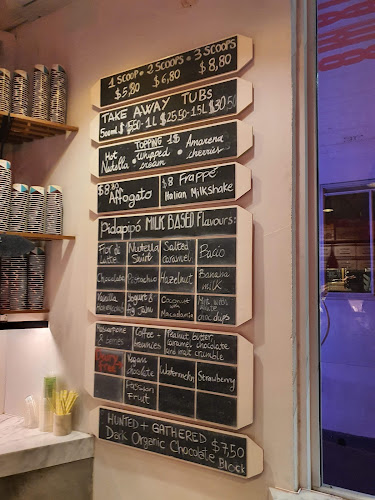 1 SCOOP • 2 SCOOPS • 3 SCOOPS
$5,80 $6,80 $8,80
TAKE AWAY TUBS
500ml $ 1L $25,50 1.5L $30,50
TOPPING 1$
Hot Nutella • whipped cream • Amarena cherries
$8,80 Affogato
$8 Frappé
Italian Milkshake
Pidapipó MILK BASED Flavours:
Fior di Latte Nutella Swirl Salted caramel Bacio
Chocolate Pistachio Hazelnut Banana milk
Vanilla Yogurt & fig Coconut with Macadamia Mint with chocolate chips
Mascarpone & berries Coffee + brownies Peanut butter, caramel chocolate and malt crumble
Vegan chocolate Watermelon Strawberry
Passion Fruit
HUNTED + GATHERED $7,50
Dark Organic Chocolate Block